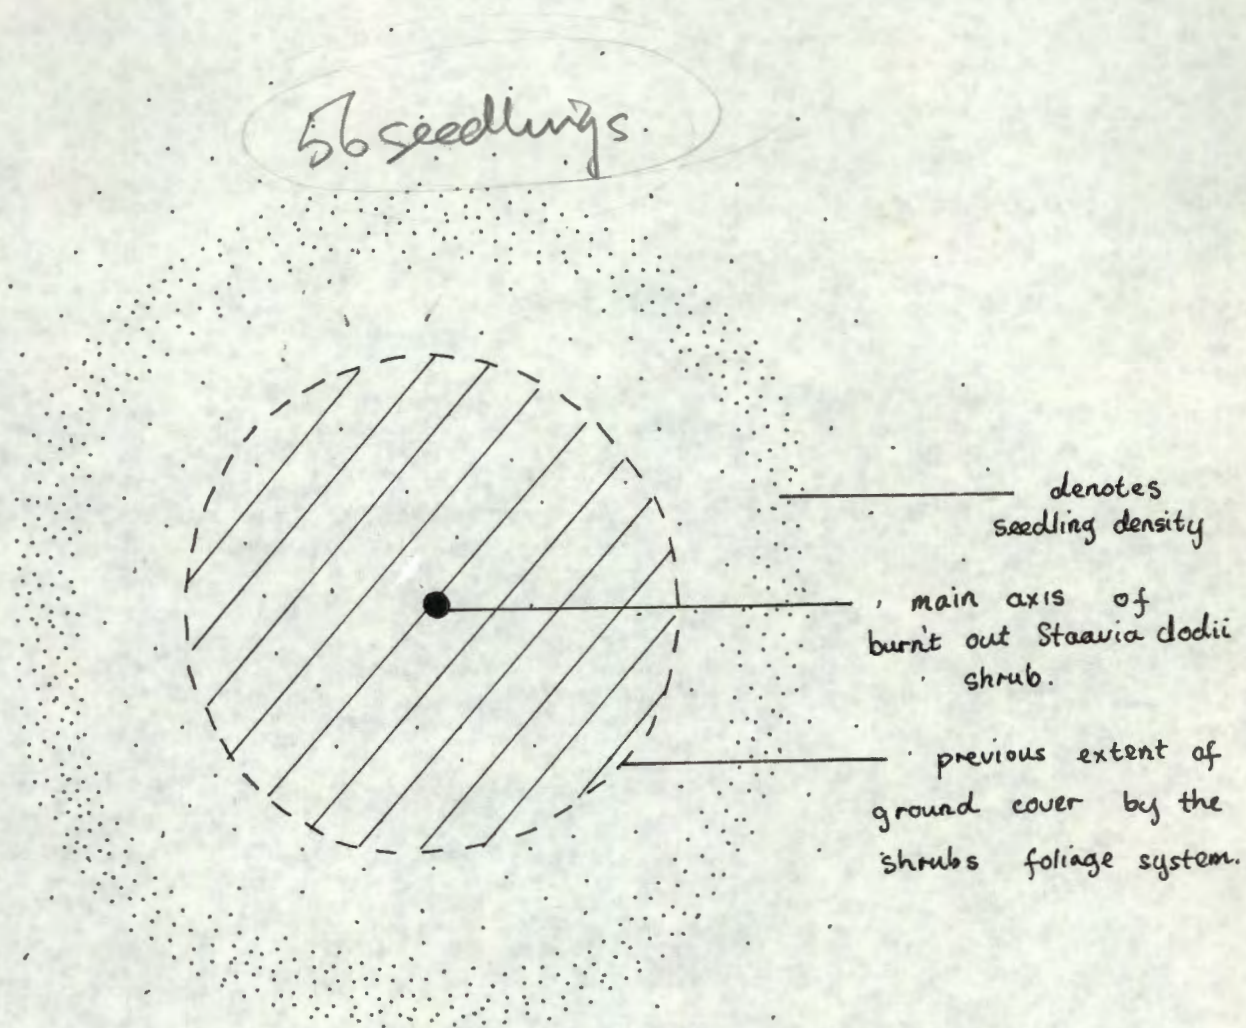 56 seedlings.
denotes
seedling density
main axis of
burn't out Staavia dodii
shrub.
previous extent of
ground cover by the
shrubs foliage system.